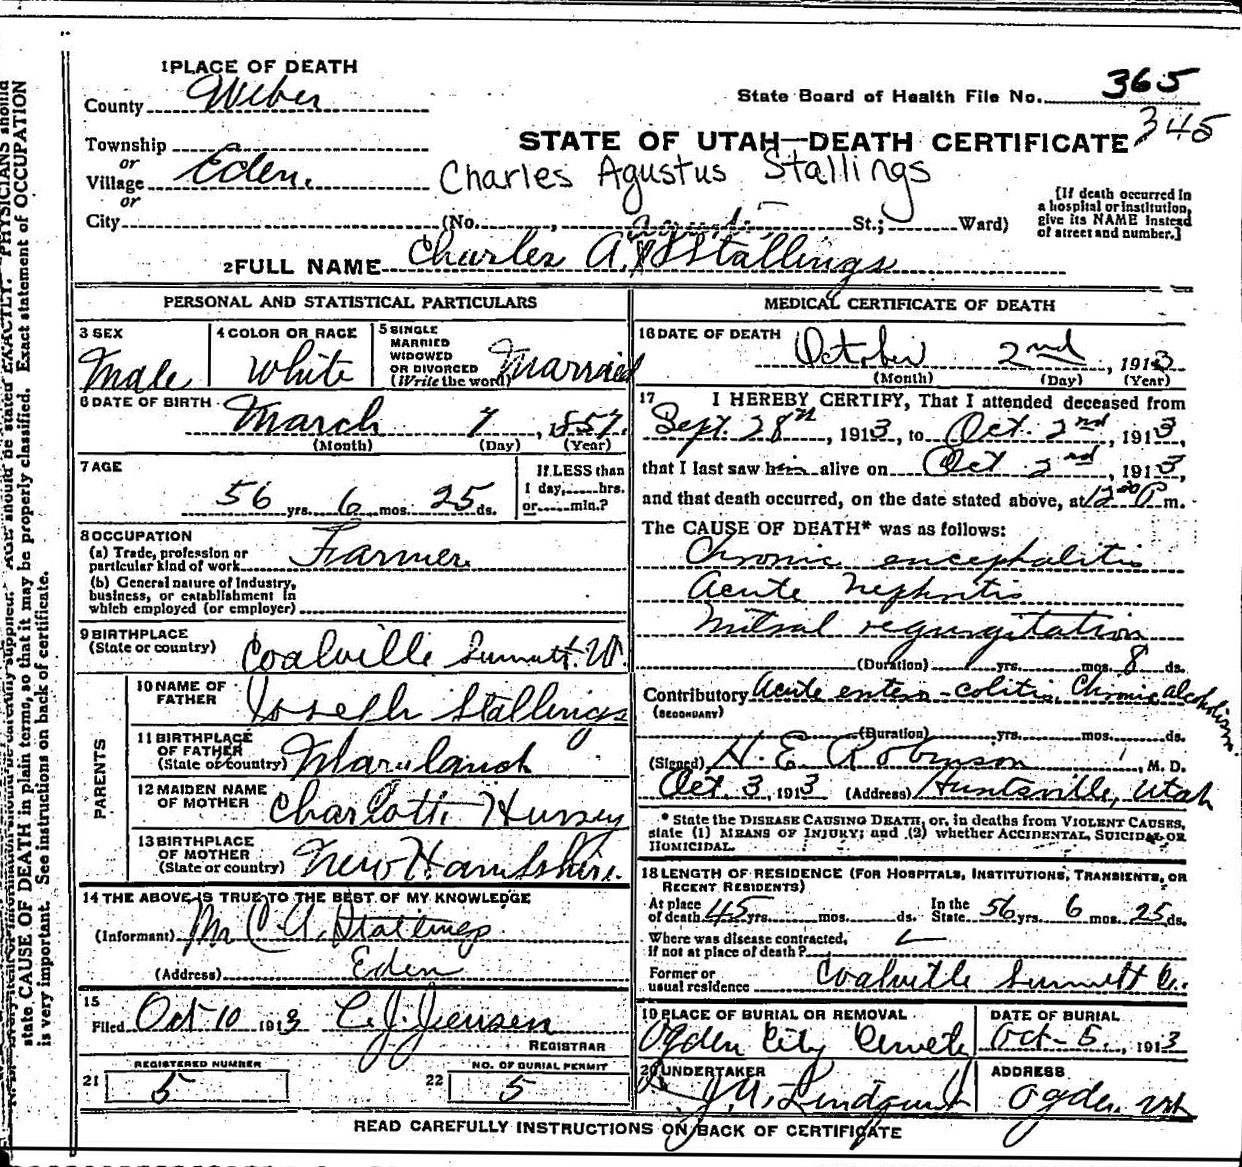 1 PLACE OF DEATH
County Weber
State Board of Health File No. 365
345
Township
or
Village Eden.
or
City (No. , St.; Ward)
STATE OF UTAH—DEATH CERTIFICATE
Charles Agustus Stallings
[If death occurred in
a hospital or institution,
give its NAME instead
of street and number.]
2 FULL NAME Charles A. Stallings
PERSONAL AND STATISTICAL PARTICULARS
3 SEX
Male
4 COLOR OR RACE
White
5 SINGLE
MARRIED
WIDOWED
OR DIVORCED
(Write the word) Married
6 DATE OF BIRTH March 7, 1857.
(Month) (Day) (Year)
7 AGE
56 yrs. 6 mos. 25 ds.
If LESS than
1 day, hrs.
or min.?
8 OCCUPATION
(a) Trade, profession or
particular kind of work Farmer
(b) General nature of Industry,
business, or establishment in
which employed (or employer)
9 BIRTHPLACE
(State or country) Coalville Summit. Ut.
PARENTS
10 NAME OF
FATHER Joseph Stallings
11 BIRTHPLACE
OF FATHER
(State or country) Maryland
12 MAIDEN NAME
OF MOTHER Charlotte Hussey
13 BIRTHPLACE
OF MOTHER
(State or country) New Hampshire.
14 THE ABOVE IS TRUE TO THE BEST OF MY KNOWLEDGE
(Informant) Mr C. A. Stallings
(Address) Eden
15
Filed Oct 10 1913 C. J. Jensen
REGISTRAR
REGISTERED NUMBER
21 5
NO. OF BURIAL PERMIT
22 5
MEDICAL CERTIFICATE OF DEATH
16 DATE OF DEATH October 2nd, 1913
(Month) (Day) (Year)
17 I HEREBY CERTIFY, That I attended deceased from
Sept. 28th, 1913, to Oct. 2nd, 1913,
that I last saw him alive on Oct 2nd, 1913,
and that death occurred, on the date stated above, at 12 P m.
The CAUSE OF DEATH* was as follows:
Chronic encephalitis
Acute Nephritis
Mitral regurgitation
(Duration) yrs. mos. 8 ds.
Contributory Acute entero-colitis, Chronic alcoholism.
(SECONDARY)
(Duration) yrs. mos. ds.
(Signed) H. E. Robinson, M. D.
Oct. 3, 1913 (Address) Huntsville, Utah
* State the DISEASE CAUSING DEATH, or, in deaths from VIOLENT CAUSES,
state (1) MEANS OF INJURY; and (2) whether ACCIDENTAL, SUICIDAL OR
HOMICIDAL.
18 LENGTH OF RESIDENCE (FOR HOSPITALS, INSTITUTIONS, TRANSIENTS, OR
RECENT RESIDENTS)
At place
of death 45 yrs. mos. ds.
In the
State 56 yrs. 6 mos. 25 ds.
Where was disease contracted,
If not at place of death?
Former or
usual residence Coalville Summit Co.
19 PLACE OF BURIAL OR REMOVAL
Ogden City Cemetery
DATE OF BURIAL
Oct-5., 1913
20 UNDERTAKER
J. A. Lindquist
ADDRESS
Ogden. Utah
READ CAREFULLY INSTRUCTIONS ON BACK OF CERTIFICATE
AGE should be stated EXACTLY. PHYSICIANS should
state CAUSE OF DEATH in plain terms, so that it may be properly classified. Exact statement of OCCUPATION
is very important. See instructions on back of certificate.